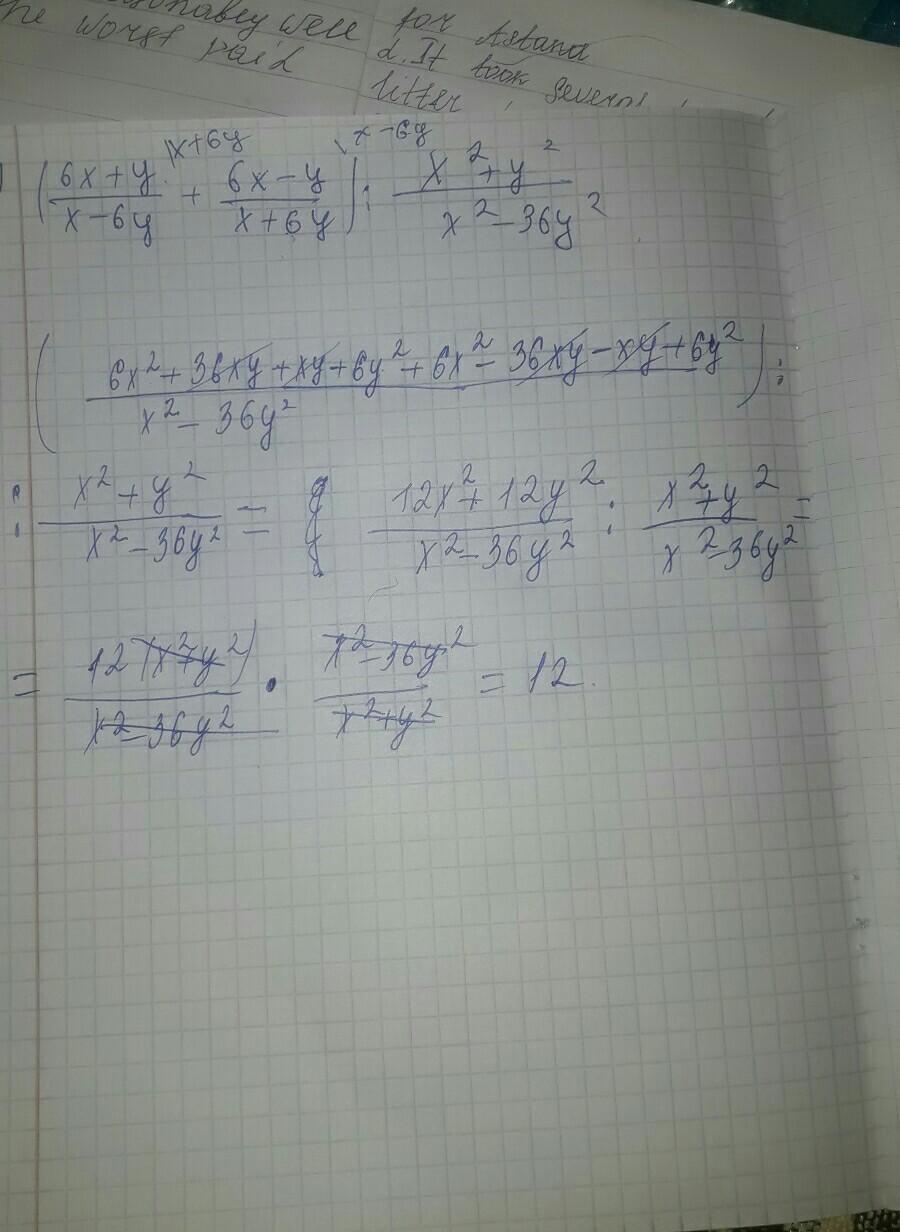 well for Astana
the worst paid d. It took
litter, several
\x+6y \x-6y
(6x+y/x-6y + 6x-y/x+6y) : x²+y²/x²-36y²
(6x²+36xy+xy+6y²+6x²-36xy-xy+6y²/x²-36y²) :
: x²+y²/x²-36y² = 12x²+12y²/x²-36y² : x²+y²/x²-36y² =
= 12(x²+y²)/x²-36y² · x²-36y²/x²+y² = 12.